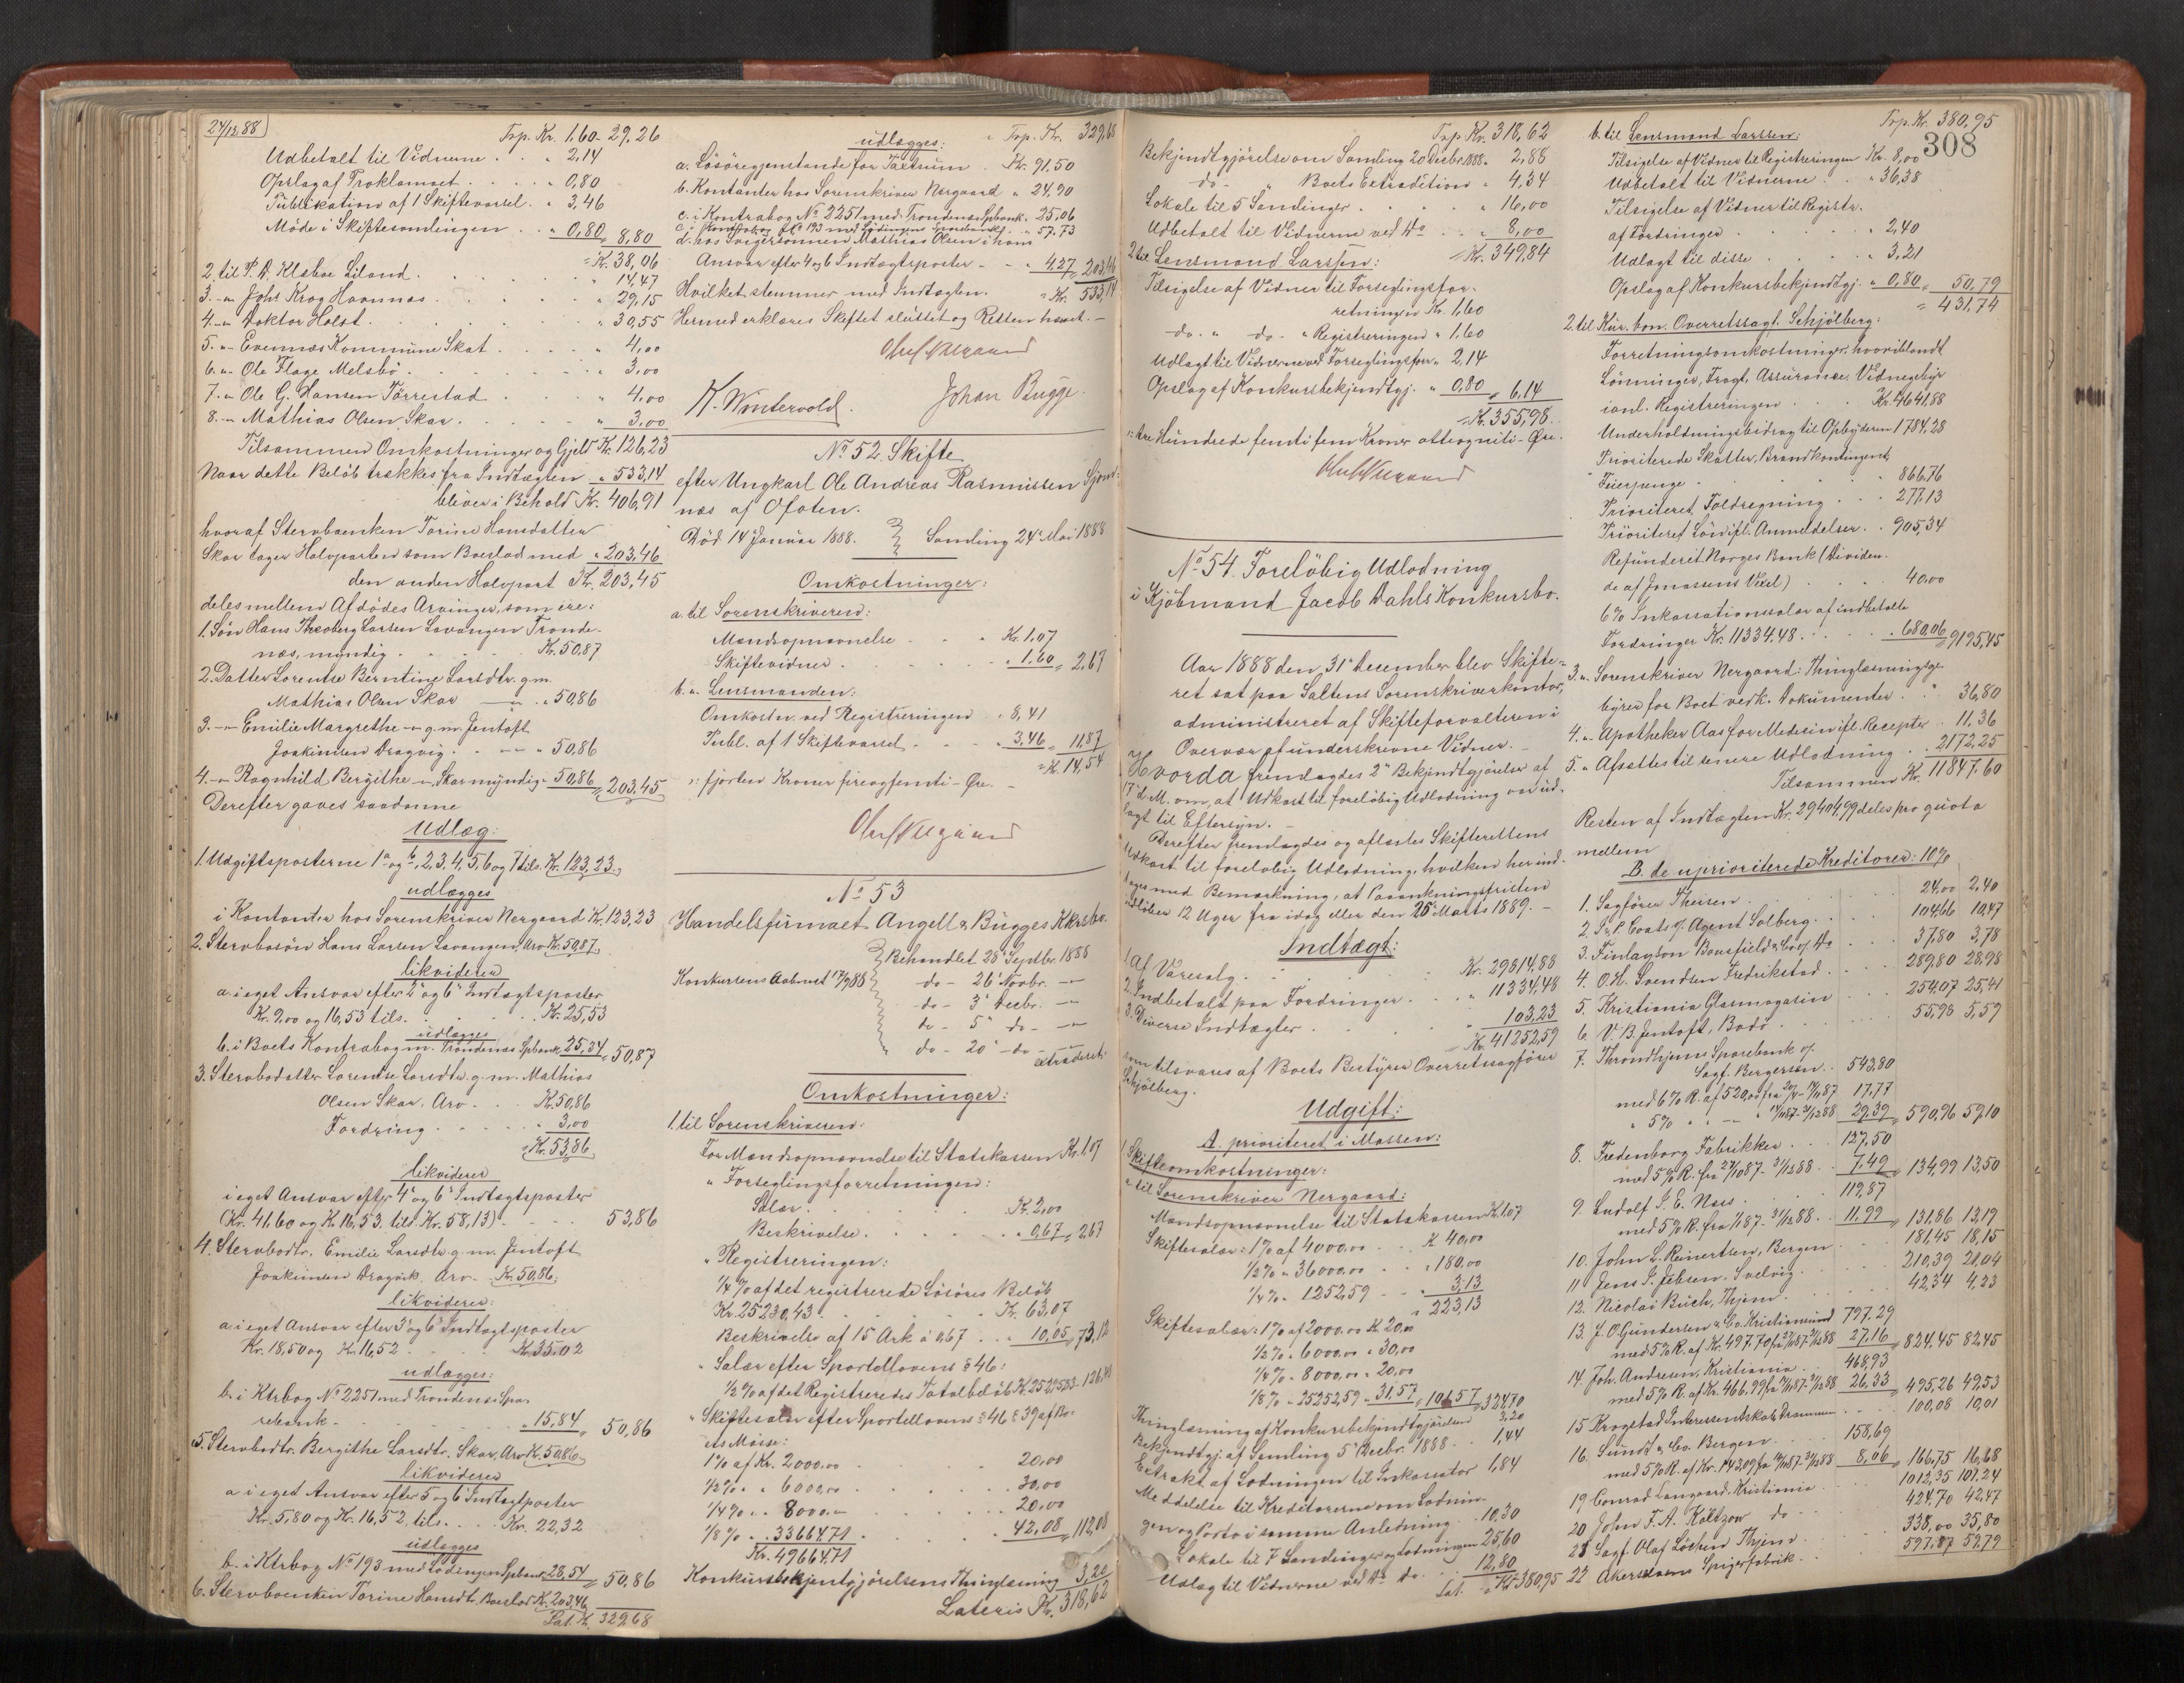 24/12 88
Trp. Kr. 1.60 29,26
Udbetalt til Vidnerne . . " 2,14
Opslag af Proklamaet . . . " 0,80
Publikation af 1 Skiftevarsel . " 3,46
Möde i Skiftesamlingen . . " 0,80 = 8,80
= Kr. 38,06
2. til P. A. Klæboe Liland . . . " 14,47
3. -"- Johs Krog Havnnæs . . . " 29,15
4. -"- Doktor Holst . . . " 30,55
5. -"- Evenæs Kommune Skat . . . " 4,00
6. -"- Ole Flage Melsbö . . . " 3,00
7. -"- Ole G. Hansen Törrestad . . . " 4,00
8. -"- Mathias Olsen Skar . . . " 3,00
Tilsammen Omkostninger og Gjeld Kr. 126,23
Naar dette Belöb trækkes fra Indtægten " 533,14
bliver i Behold Kr. 406,91
hvoraf Stervboenken Torine Hansdatter
Skar tager Halvparten som Boeslod med " 203,46
den anden Halvpart Kr. 203,45
deles mellem Afdödes Arvinger, som ere:
1. Sön Hans Theoberg Larsen Lavangen Tronde-
næs, myndig . . . Kr. 50,87
2. Datter Lorentse Berntine Larsdtr. g.m.
Mathias Olsen Skar -"- " 50,86
3. -"- Emilie Margrethe -"- g.m. Jentoft
Joakimsen Dragvig . . -"- " 50,86
4. -"- Ragnhild Bergithe -"- Skar myndig " 50,86 = 203,45
Derefter gaves saadanne
Udlæg:
1. Udgiftsposterne 1 a og b, 2, 3, 4, 5, 6 og 7 tils. Kr. 123,23
udlægges
i Kontanter hos Sorenskriver Nergaard Kr. 123,23
2. Stervbosön Hans Larsen Lavangen, Arv Kr. 50,87
likviderer
a. i eget Ansvar efter 2 og 6 Indtægtsposter
Kr. 9,00 og 16,53 tils. . . Kr. 25,53
udlægges
b. i Boets Kontrabog m. Trondenæs Spbank 25,34 = 50,87
3. Stervbodatter Lorentse Larsdtr. g.m. Mathias
Olsen Skar, Arv . . . Kr. 50,86
Fordring . . . " 3,00
= Kr. 53,86
likviderer
i eget Ansvar efter 4 og 6 Indtægtsposter
(Kr. 41,60 og Kr. 16,53. tils. Kr. 58,13) . . . 53,86
4. Stervbodtr. Emilie Larsdtr. g.m. Jentoft
Joakimsen Dragvik, Arv - Kr. 50,86
likviderer:
a. i eget Ansvar efter 3 og 6 Indtægtsposter
Kr. 18,50 og Kr. 16,52 . . Kr. 35,02
udlægges:
b. i Ktrbog No 2251 med Trondenæs Spa-
rebank - . . . " 15,84 = 50,86
5. Stervbodtr. Bergithe Larsdtr. Skar, Arv Kr. 50,86
likviderer
a. i eget Ansvar efter 5 og 6 Indtægtsposter
Kr. 5,80 og Kr. 16,52, tils. . . Kr. 22,32
udlægges
b. i Ktrbog No 193 med Lödingen Spbank " 28,54 = 50,86
6. Stervboenken Torine Hansdtr. Boeslod Kr. 203,46
Lat. Kr. 329,68
Trp. Kr. 329,68
udlægges:
a. Lösöregjenstande for Taxtsum . Kr. 91,50
b. Kontanter hos Sorenskriver Nergaard " 24,90
c. i Kontrabog No 2251 med Trondenæs Spbank . 25,06
c. i Kontrabog No 193 med Lödingens Sparebank . " 57,73
d. hos Svigersönnen Mathias Olsen i hans
Ansvar efter 4 og 6 Indtægtsposter - . " 4,27 = 203,46
Hvilket stemmer med Indtægten. = Kr. 533,14
Hermed erklæres Skiftet sluttet og Retten hævet. -
Oluf Nergaard
K. Wintervold. Johan Bugge.
No 52. Skifte
efter Ungkarl Ole Andreas Rasmussen Sjom-
næs af Ofoten.
Död 14 Januar 1888. Samling 24 Mai 1888
Omkostninger:
a. til Sorenskriveren:
Mandsopnævnelse . . " Kr. 1,07
Skiftevidner . . . " 1,60 = 2,67
b. " Lensmanden:
Omkostn. ved Registreringen " 8,41
Publ. af 1 Skiftevarsel . . . " 3,46 = 11,87
= Kr. 14,54
": fjorten Kroner fireogfemti - Øre. -
Oluf Nergaard
No 53
Handelsfirmaet Angell & Bugges Kkrsbo.
Konkursens Aabnet 17/9 88
Behandlet 28 Septbr. 1888
- do - 26 Novbr. -"-
- do - 3 Decbr. -"-
do - 5 do - -"-
do - 20 - do - -"-
extraderet.
Omkostninger:
1. til Sorenskriveren:
For Mandsopnævnelse til Statskassen Kr. 1,07
" Forseglingsforretningen:
Salær . . . Kr. 2,00
Beskrivelse . . . " 0,67 = 2,67
" Registreringen:
1/4 % af det registrerede Lösöres Belöb
Kr. 25230,43 . . . Kr. 63,07
Beskrivelse af 15 Ark á 0,67 . . " 10,05 = 73,12
" Salær efter Sportelloven § 46:
1/2 % af det Registreredes Totalbelöb Kr. 25295,83 - 126,48
" Skiftesalær efter Sportelloven § 46 & 39 af Bo-
ets Masse:
1 % af Kr. 2000,00 . . . 20,00
1/2 % " " 6000,00 . . . 30,00
1/4 % " " 8000,00 . . . 20,00
1/8 % " . 33664,71 . . . 42,08 = 112,08
Kr. 49664,71
Konkursbekjentgjörelsens Thinglæsning 3,20
Lateris Kr. 318,62
Trp. Kr. 318,62
Bekjendtgjörelse om Samling 20 Decbr. 1888 . 2,88
do - " Boets Extradition " 4,34
Lokale til 5 Samlinger . . . . " 16,00
Udbetalt til Vidnerne ved Do . . " 8,00
= Kr. 349,84
2. til Lensmand Larssen:
Tilsigelse af Vidner til Forseglingsfor-
retningen Kr. 1,60
- do. " do - " Registreringen " 1,60
Udlagt til Vidnerne ved Forseglingsforr. " 2,14
Opslag af Konkursbekjendtgj. " 0,80 = 6,14
= Kr. 355,98
": tre Hundrede femti fem Kroner otteogniti - Øre.
Oluf Nergaard
No 54. Forelöbig Udlodning
i Kjöbmand Jacob Dahls Konkursbo.
Aar 1888 den 31 December blev Skifte-
ret sat paa Saltens Sorenskriverkontor,
administreret af Skifteforvalteren i
Overvær af underskrevne Vidner. -
Hvorda fremlagdes 2 Bekjendtgjörelser af
17 d. M. om, at Udkast til forelöbig Udlodning var ud-
lagt til Eftersyn. -
Derefter fremlagdes og aflæstes Skifterettens
Udkast til forelöbig Udlodning, hvilken her ind-
tages med Bemærkning, at Paaankningsfristen
udlöber 12 Uger fra idag eller den 25 Marts 1889. -
Indtægt:
1. Af Varesalg . . . Kr. 29814,88
2. Indbetalt paa Fordringer . . . " 11334,48
3. Diverse Indtægter . . . " 103,23
Kr. 41252,59
som tilsvares af Boets Bestyrer Overretssagförer
Schjölberg.
Udgift:
A. prioriteret i Massen:
1. Skifteomkostninger:
a. til Sorenskriver Nergaard:
Mandsopnævnelse til Statskassen Kr. 1,07
Skiftesalær: 1 % af 4000,00 . . K 40,00
1/2 % " 36000,00 . . " 180,00
1/4 % " 1252,59 . . " 3,13
" 223,13
Skiftesalær: 1 % af 2000,00 K. 20,00
1/2 % " 6000,00 " 30,00
1/4 % " 8000,00 " 20,00
1/8 % " 25252,59 " 31,57 = 106,57 = 324,70
Thinglæsning af Konkursbekjendtgjörelsen 3,20
Bekjendtgj. af Samling 5 Decbr. 1888 . . 1,44
Extrakt af Lodningen til Inkassator 1,84
Meddelelse til Kreditorerne om Lodnin-
gen og Porto i samme Anledning . . 10,30
Lokale til 7 Samlinger og Lodningen 25,60
Udlæg til Vidnerne ved Do do . . 12,80
Lat. = Kr. 380,95
Trp. Kr. 380,95
308
b. til Lensmand Larssen:
Tilsigelse af Vidner til Registreringen Kr. 8,00
Udbetalt til Vidnerne . . " 36,38
Tilsigelse af Vidner til Registr.
af Fordringer . . . " 2,40
Udlagt til disse . . . " 3,21
Opslag af Konkursbekjendtgj. " 0,80 = 50,79
= 431,74
2. til Kur. bon. Overretssagf. Schjölberg:
Forretningsomkostninger, hvoriblandt
Lönninger, Fragt, Assurance, Vidnegebyr
ianl. Registreringen . . . Kr. 4641,88
Underholdningsbidrag til Opbyderen 1784,28
Prioriterede Skatter, Brandkontingent,
Feierpenge . . . " 866,76
Prioriteret Toldregning . . . " 277,13
Prioriteret Lön ifl. Anmeldelser . . 905,34
Refunderet Norges Bank (Dividen-
de af Jonassens Vexel) . . . 40,00
6 % Inkassationssalær af indbetalte
Fordringer Kr. 11334,48 . . . " 680,06 = 9195,45
3. " Sorenskriver Nergaard: Thinglæsningsge-
byrer for Boet vedk. Dokumenter . . " 36,80
4. " Apotheker Aas for Medecin ifl. Recepter . 11,36
5. " Afsættes til senere Udlodning . . 2172,25
Tilsammen Kr. 11847,60
Resten af Indtægten Kr. 29404,99 deles pro quota
mellem
B. de uprioriterede Kreditorer: 10 %
1. Sagförer Theisen . . . 24,00 2,40
2. J. & P. Coats v/ Agent Solberg . . . 104,66 10,47
3. Finlayson Bousfield & Co v/ Do . . . 37,80 3,78
4. O. H. Svendsen Fredrikstad . . . 289,80 28,98
5. Kristiania Glasmagasin . . . 254,07 25,41
6. V. B. Jentoft, Bodö . . . 55,93 5,59
7. Throndhjems Sparebank v/
Sagf. Bergersen . . 543,80
med 6 % R. af 520,00 fra 20/4 - 14/11 87 17,77
" 5 % " " -"- " 14/11 87 - 31/12 88 29,39 = 590,96 59,10
8. Fredenborg Fabrikker . . . 127,50
med 5 % R. fra 27/10 87 - 31/12 88 . . 7,49 = 134,99 13,50
9. Ludolf J. E. Næss . . . 119,87
med 5 % R. fra 1/1 87 - 31/12 88 . . 11,99 = 131,86 13,19
10. John L. Reinertsen, Bergen . . . 181,45 18,15
11. Jens P. Jebsen, Svelvig . . . 210,39 21,04
12. Nicolai Buch, Thjem . . . 42,34 4,23
13. J. O. Gundersen & Co. Kristiansund 797,29
med 5 % R. af Kr. 497,70 fra 27/11 87 - 31/12 88 27,16 = 824,45 82,45
14. Joh. Andresen, Kristiania . . 468,93
med 5 % R. af Kr. 466,99 fra 14/11 87 - 31/12 88 26,33 = 495,26 49,53
15. Krogstad Interessentskab, Drammen . . . 100,08 10,01
16. Sundt & Co. Bergen . . . 158,69
med 5 % R. af Kr. 143,09 fra 14/11 87 - 31/12 88 8,06 = 166,75 16,68
19. Conrad Langaard. Kristiania . . . 1012,35 101,24
20. John F. A. Költzow do - . . . 424,70 42,47
21. Sagf. Olaf Löchen Thjem . . . 338,00 35,80
22. Akerselvens Spigerfabrik . . . 597,87 59,79